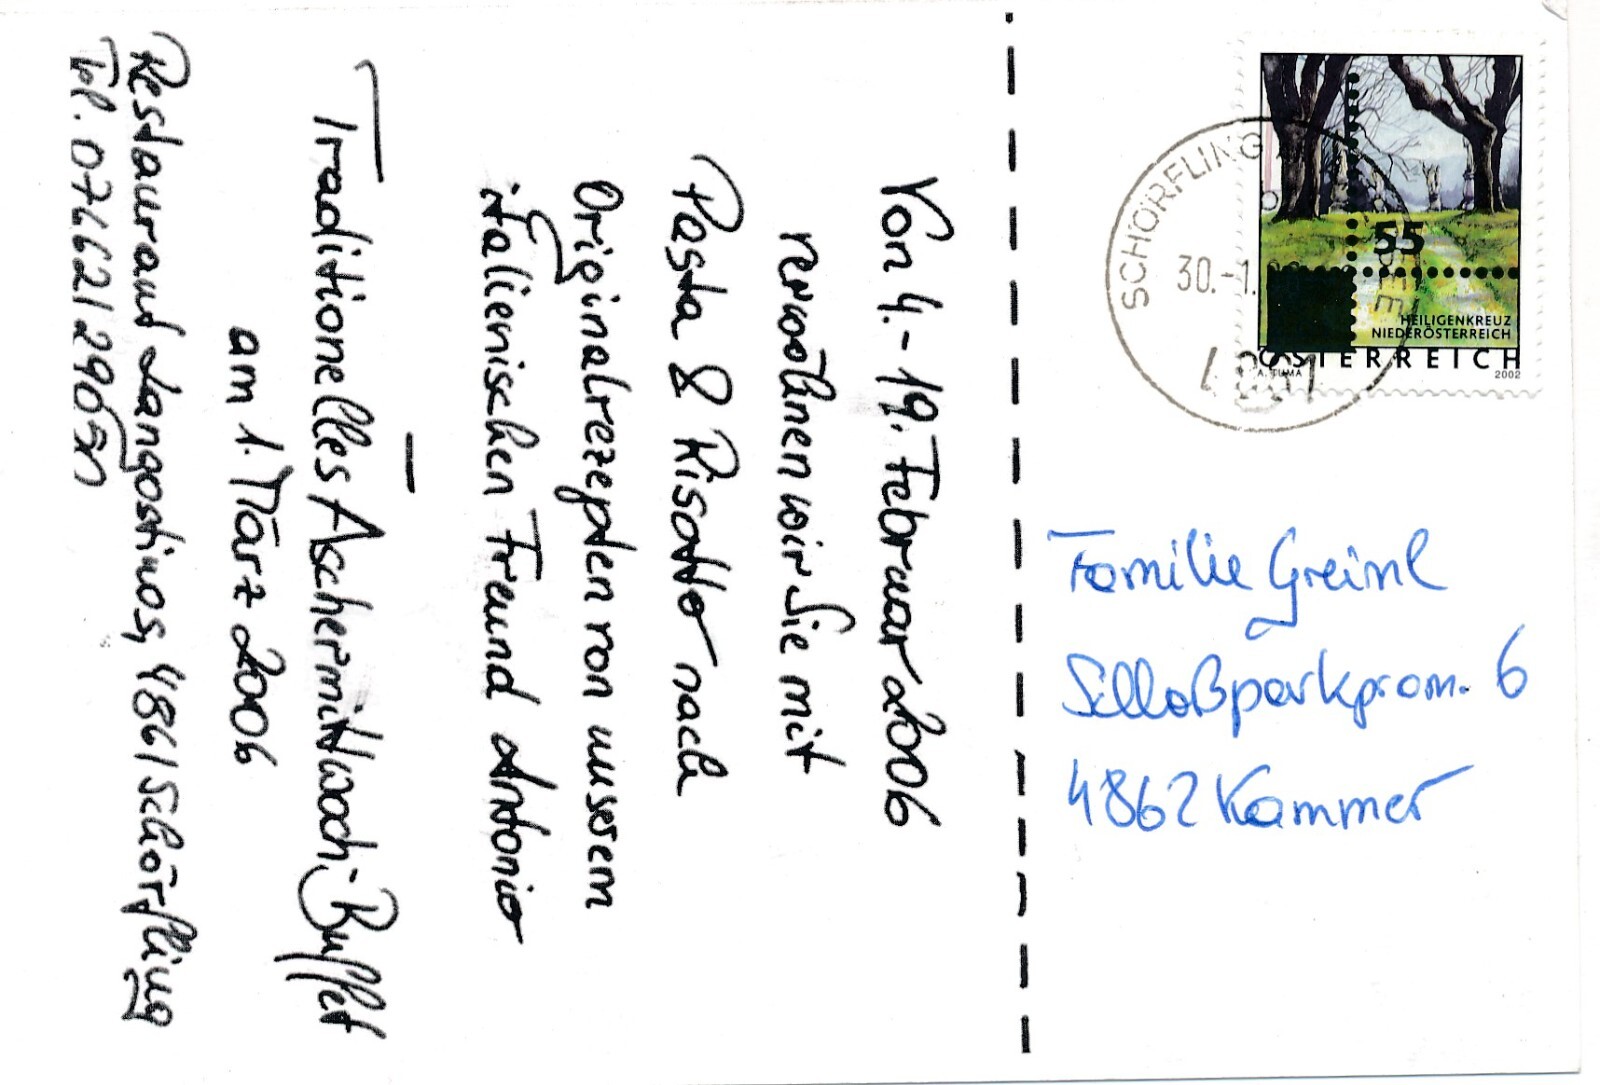 Von 4.-19. Februar 2006
verwöhnen wir Sie mit
Pasta & Risotto nach
Originalrezepten von unserem
italienischen Freund Antonio
—
Traditionelles Aschermittwoch-Buffet
am 1. März 2006
Restaurant Langostinos, 4861 Schörfling
Tel. 07662/29050
SCHÖRFLING
30.-1.
4861
55
HEILIGENKREUZ
NIEDERÖSTERREICH
ÖSTERREICH
A. TUMA 2002
Familie Greiml
Schloßparkprom. 6
4862 Kammer